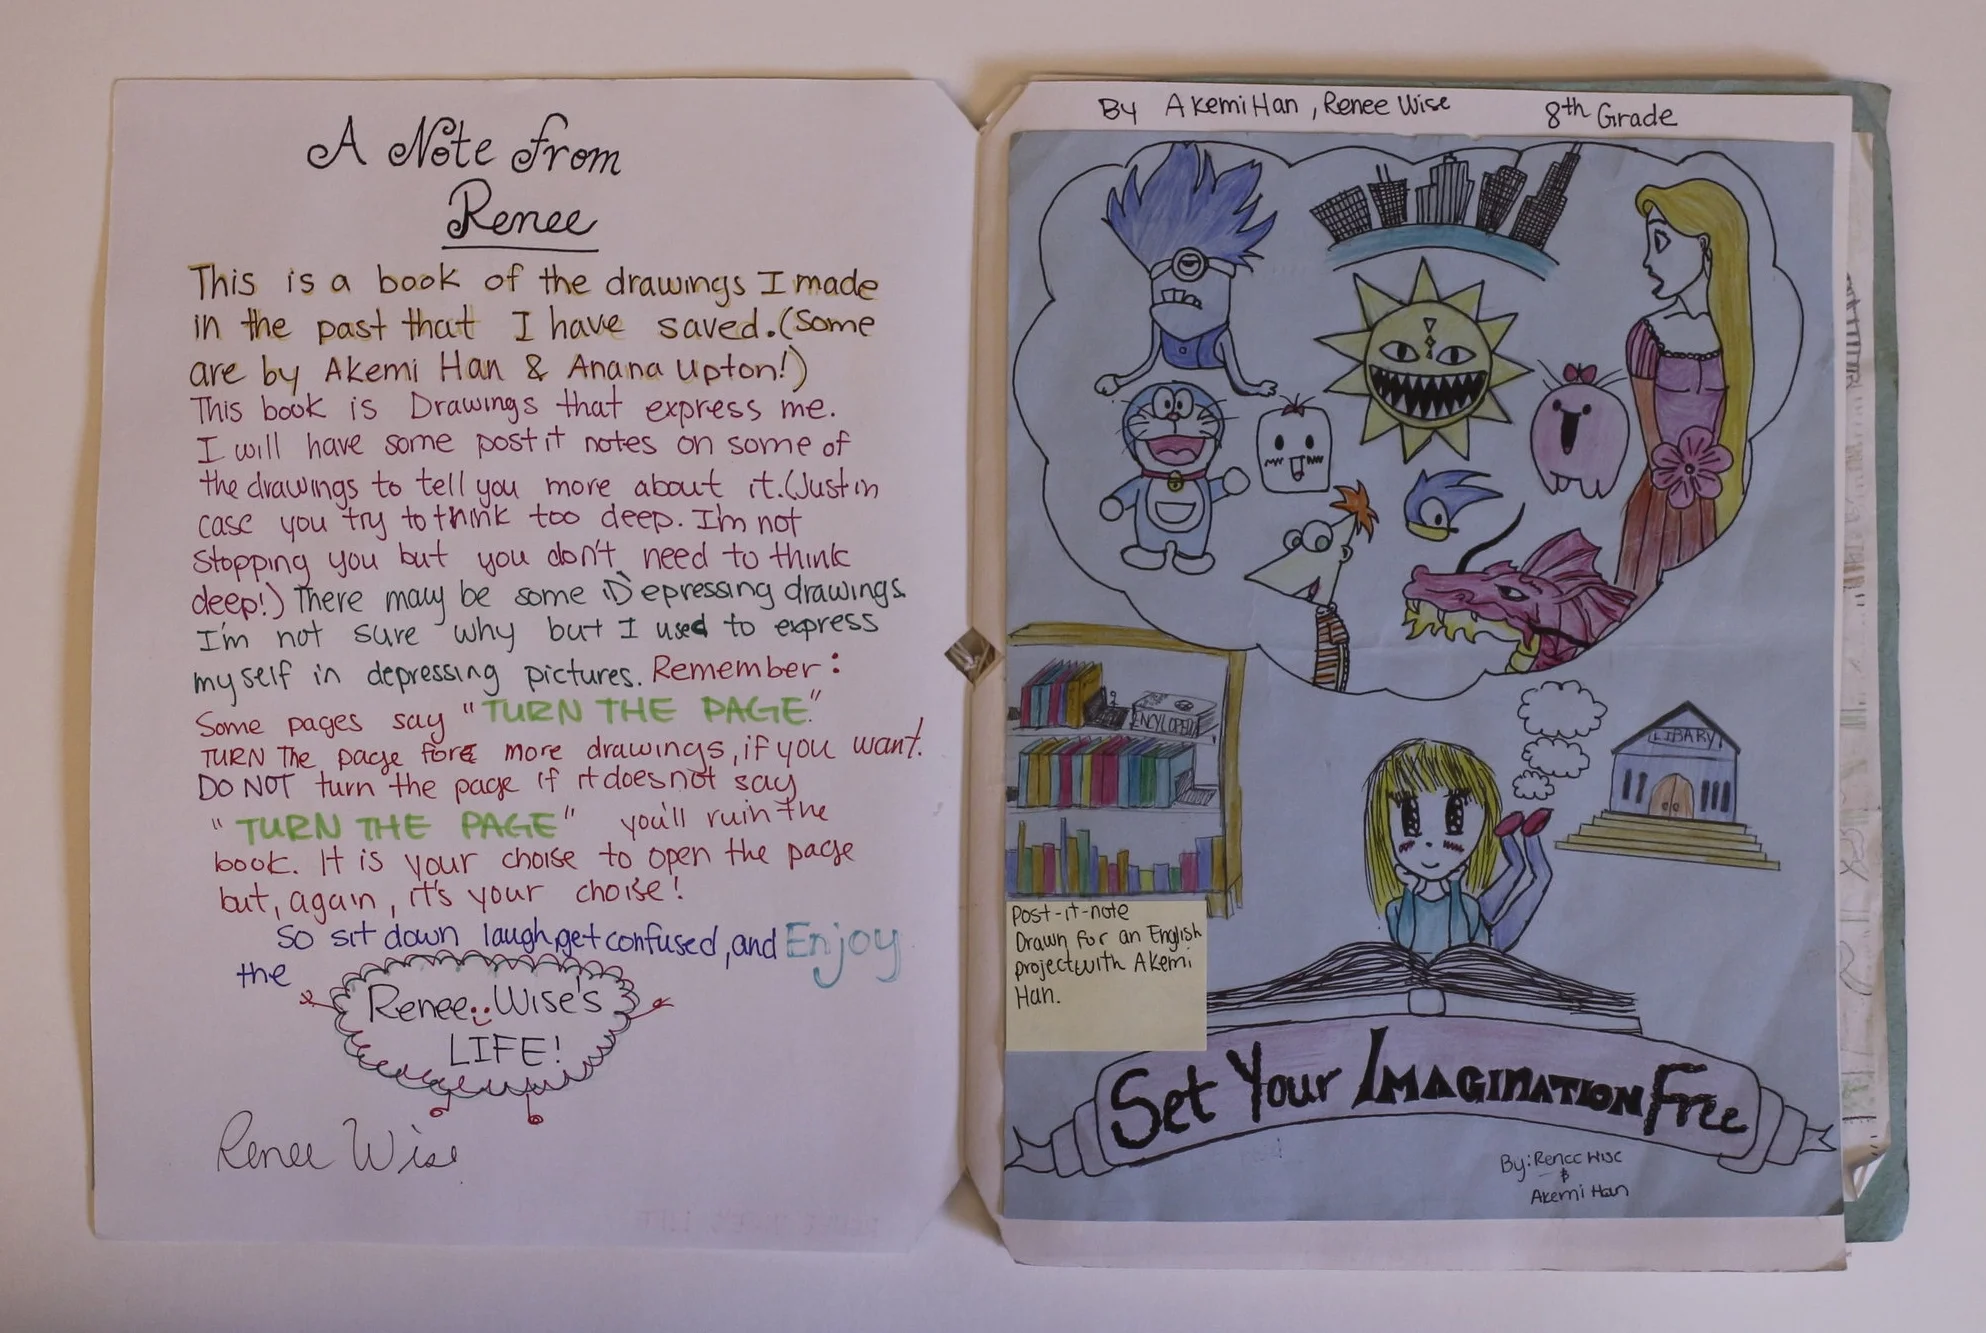 A Note from
Renee
This is a book of the drawings I made
in the past that I have saved.(Some
are by Akemi Han & Anana Upton!)
This book is Drawings that express me.
I will have some post it notes on some of
the drawings to tell you more about it.(Just in
case you try to think too deep. I'm not
stopping you but you don't need to think
deep!) There may be some Depressing drawings.
I'm not sure why but I used to express
myself in depressing pictures. Remember:
Some pages say "TURN THE PAGE."
TURN The page for more drawings, if you want.
DO NOT turn the page if it does not say
"TURN THE PAGE" you'll ruin the
book. It is your choise to open the page
but, again, it's your choise!
So sit down laugh, get confused, and Enjoy
the
Renee Wise's
LIFE!
Renee Wise
By Akemi Han, Renee Wise 8th Grade
ENCYLOPEDIA
LIBRARY
Post-it-note
Drawn for an English
project with Akemi
Han.
Set Your IMAGINATION Free
By: Renee Wise
&
Akemi Han